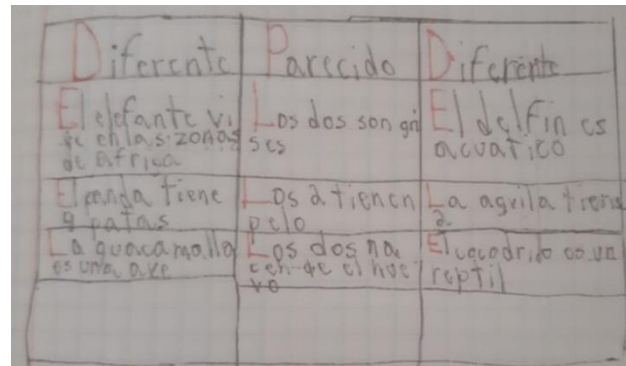 Diferente Parecido Diferente
El elefante vi
ve en las zonas
de africa
Los dos son gri
ses
El delfin es
acuatico
El panda tiene
4 patas
Los 2 tienen
pelo
La aguila tiene
2
La guacamalla
es una ave
Los dos na
cen de el hue
vo
El cocodrilo es un
reptil